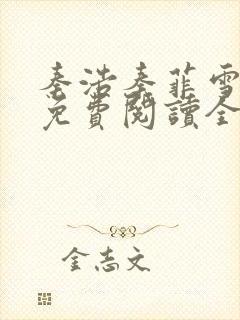 秦浩秦菲雪
免費閱讀全
金志文